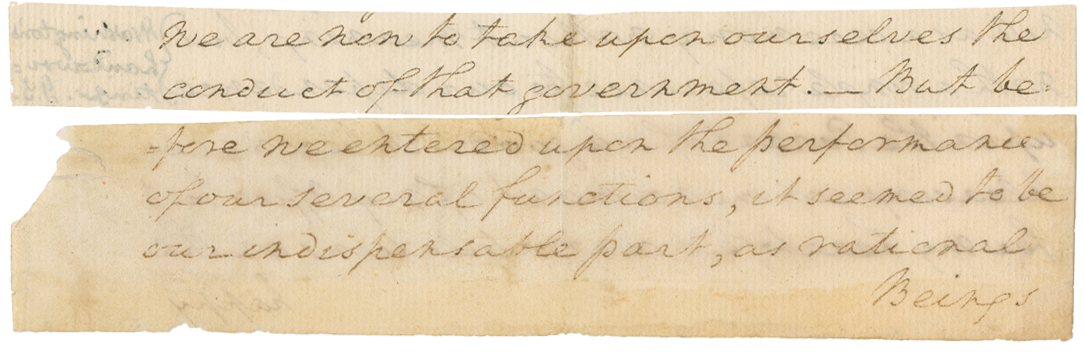 We are now to take upon ourselves the
conduct of that government. — But be-
-fore we entered upon the performance
of our several functions, it seemed to be
our indispensable part, as rational
Beings